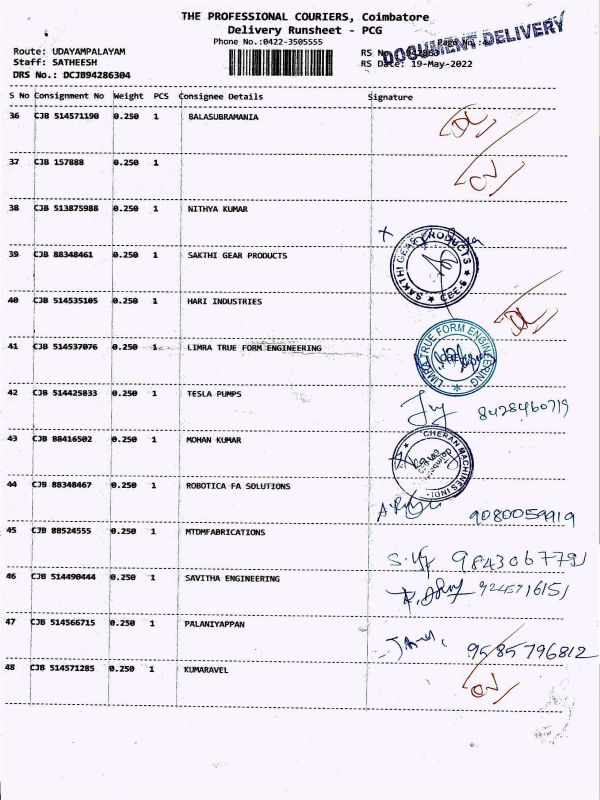 THE PROFESSIONAL COURIERS, Coimbatore
Delivery Runsheet - PCG
Phone No.:0422-3505555
DOCUMENT DELIVERY
Route: UDAYAMPALAYAM
Staff: SATHEESH
RS Date: 19-May-2022
DRS No.: DCJB94286304
S No Consignment No Weight PCS Consignee Details Signature
36 CJB 514571190 0.250 1 BALASUBRAMANIA
37 CJB 157888 0.250 1
38 CJB 513875988 0.250 1 NITHYA KUMAR
39 CJB 88348461 0.250 1 SAKTHI GEAR PRODUCTS
SAKTHI GEAR PRODUCTS
CBE-6
40 CJB 514535105 0.250 1 HARI INDUSTRIES
41 CJB 514537076 0.250 1 LIMRA TRUE FORM ENGINEERING
LIMRA TRUE FORM ENGINEERING
42 CJB 514425833 0.250 1 TESLA PUMPS
8428460719
43 CJB 88416502 0.250 1 MOHAN KUMAR
CHERAN MACHINES INDI
44 CJB 88348467 0.250 1 ROBOTICA FA SOLUTIONS
9080059919
45 CJB 88524555 0.250 1 MTDMFABRICATIONS
9843067791
46 CJB 514490444 0.250 1 SAVITHA ENGINEERING
47 CJB 514566715 0.250 1 PALANIYAPPAN
9585796812
48 CJB 514571285 0.250 1 KUMARAVEL